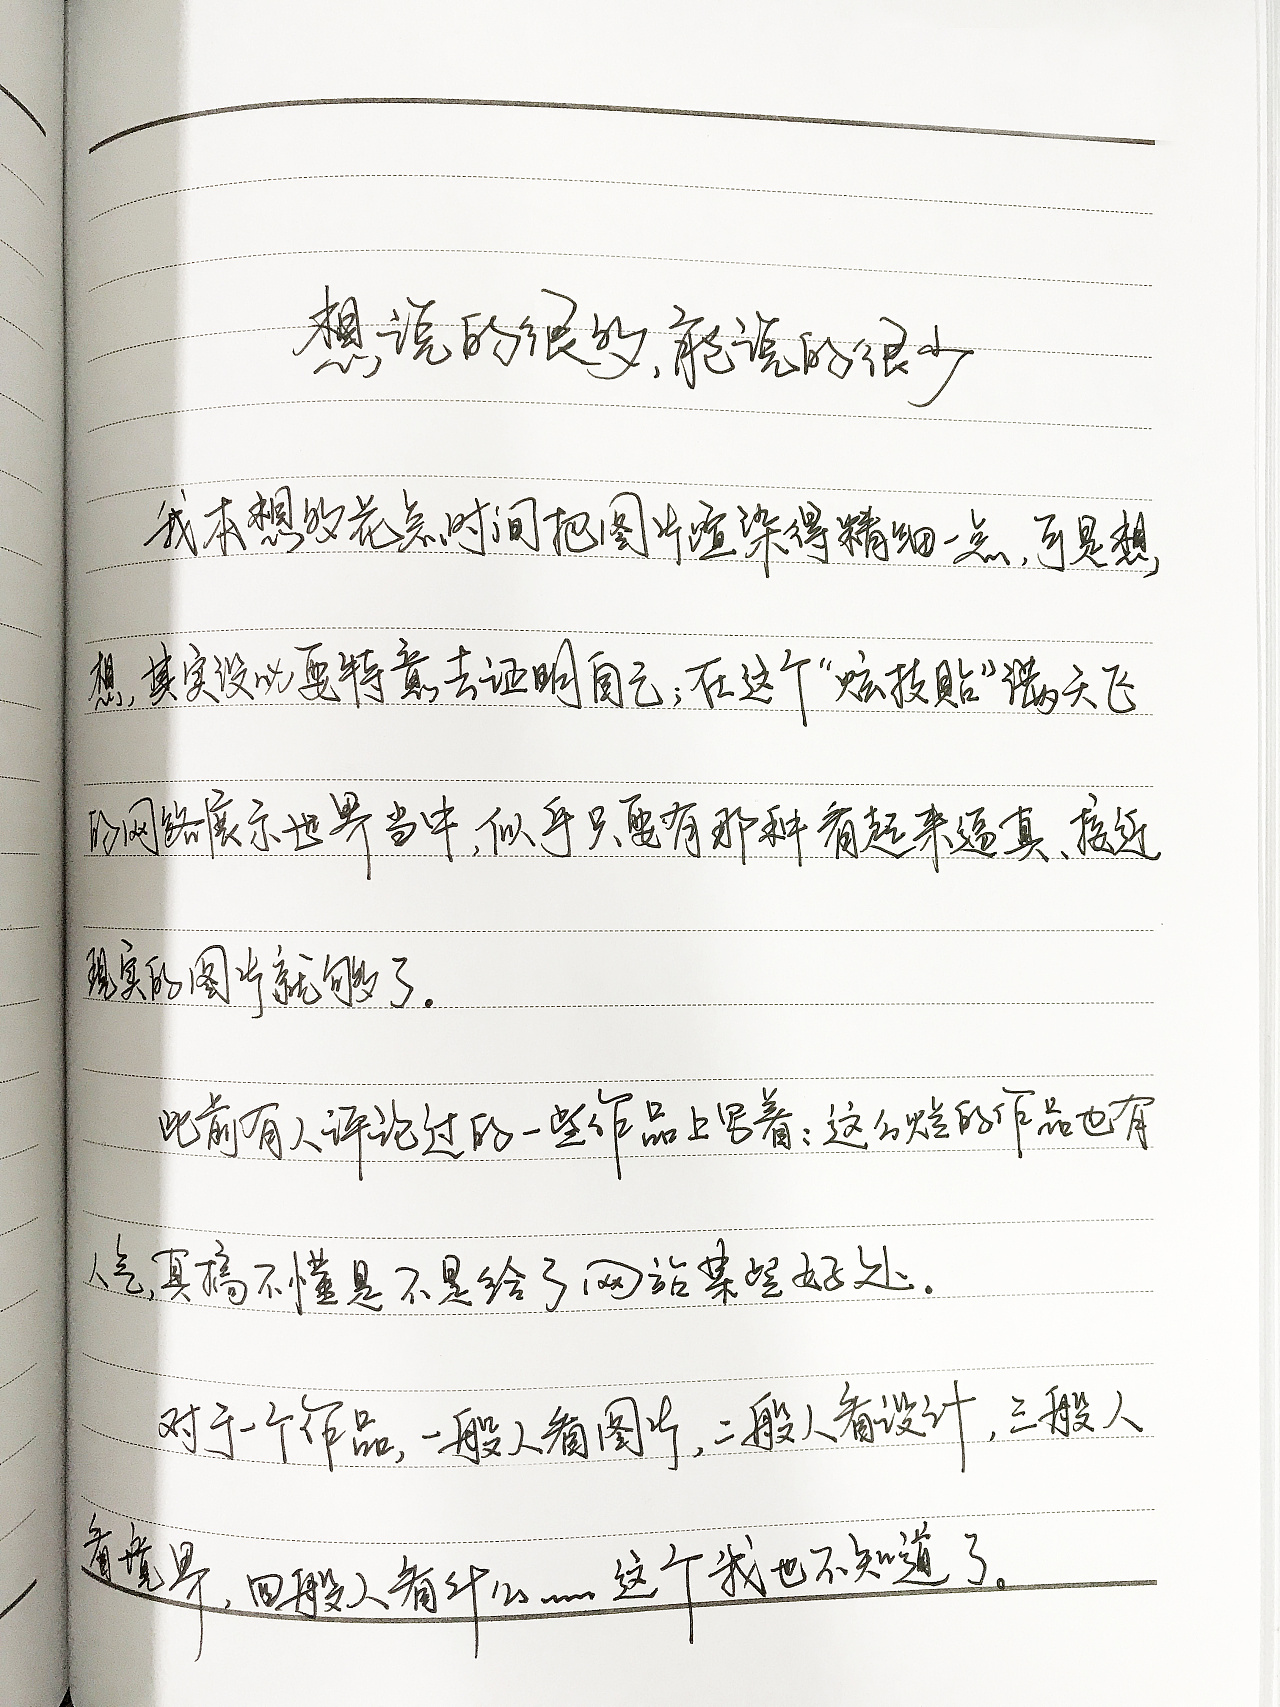 想说的很多,能说的很少
我本想多花点时间把图片渲染得精细一点,可是想
想,其实没必要特意去证明自己;在这个“炫技贴”满天飞
的网络展示世界当中,似乎只要有那种看起来逼真、接近
现实的图片就够了。
此前有人评论过的一些作品上写着:这么烂的作品也有
人气,真搞不懂是不是给了网站某些好处。
对于一个作品,一般人看图片,二般人看设计,三般人
看境界,四般人看什么……这个我也不知道了。